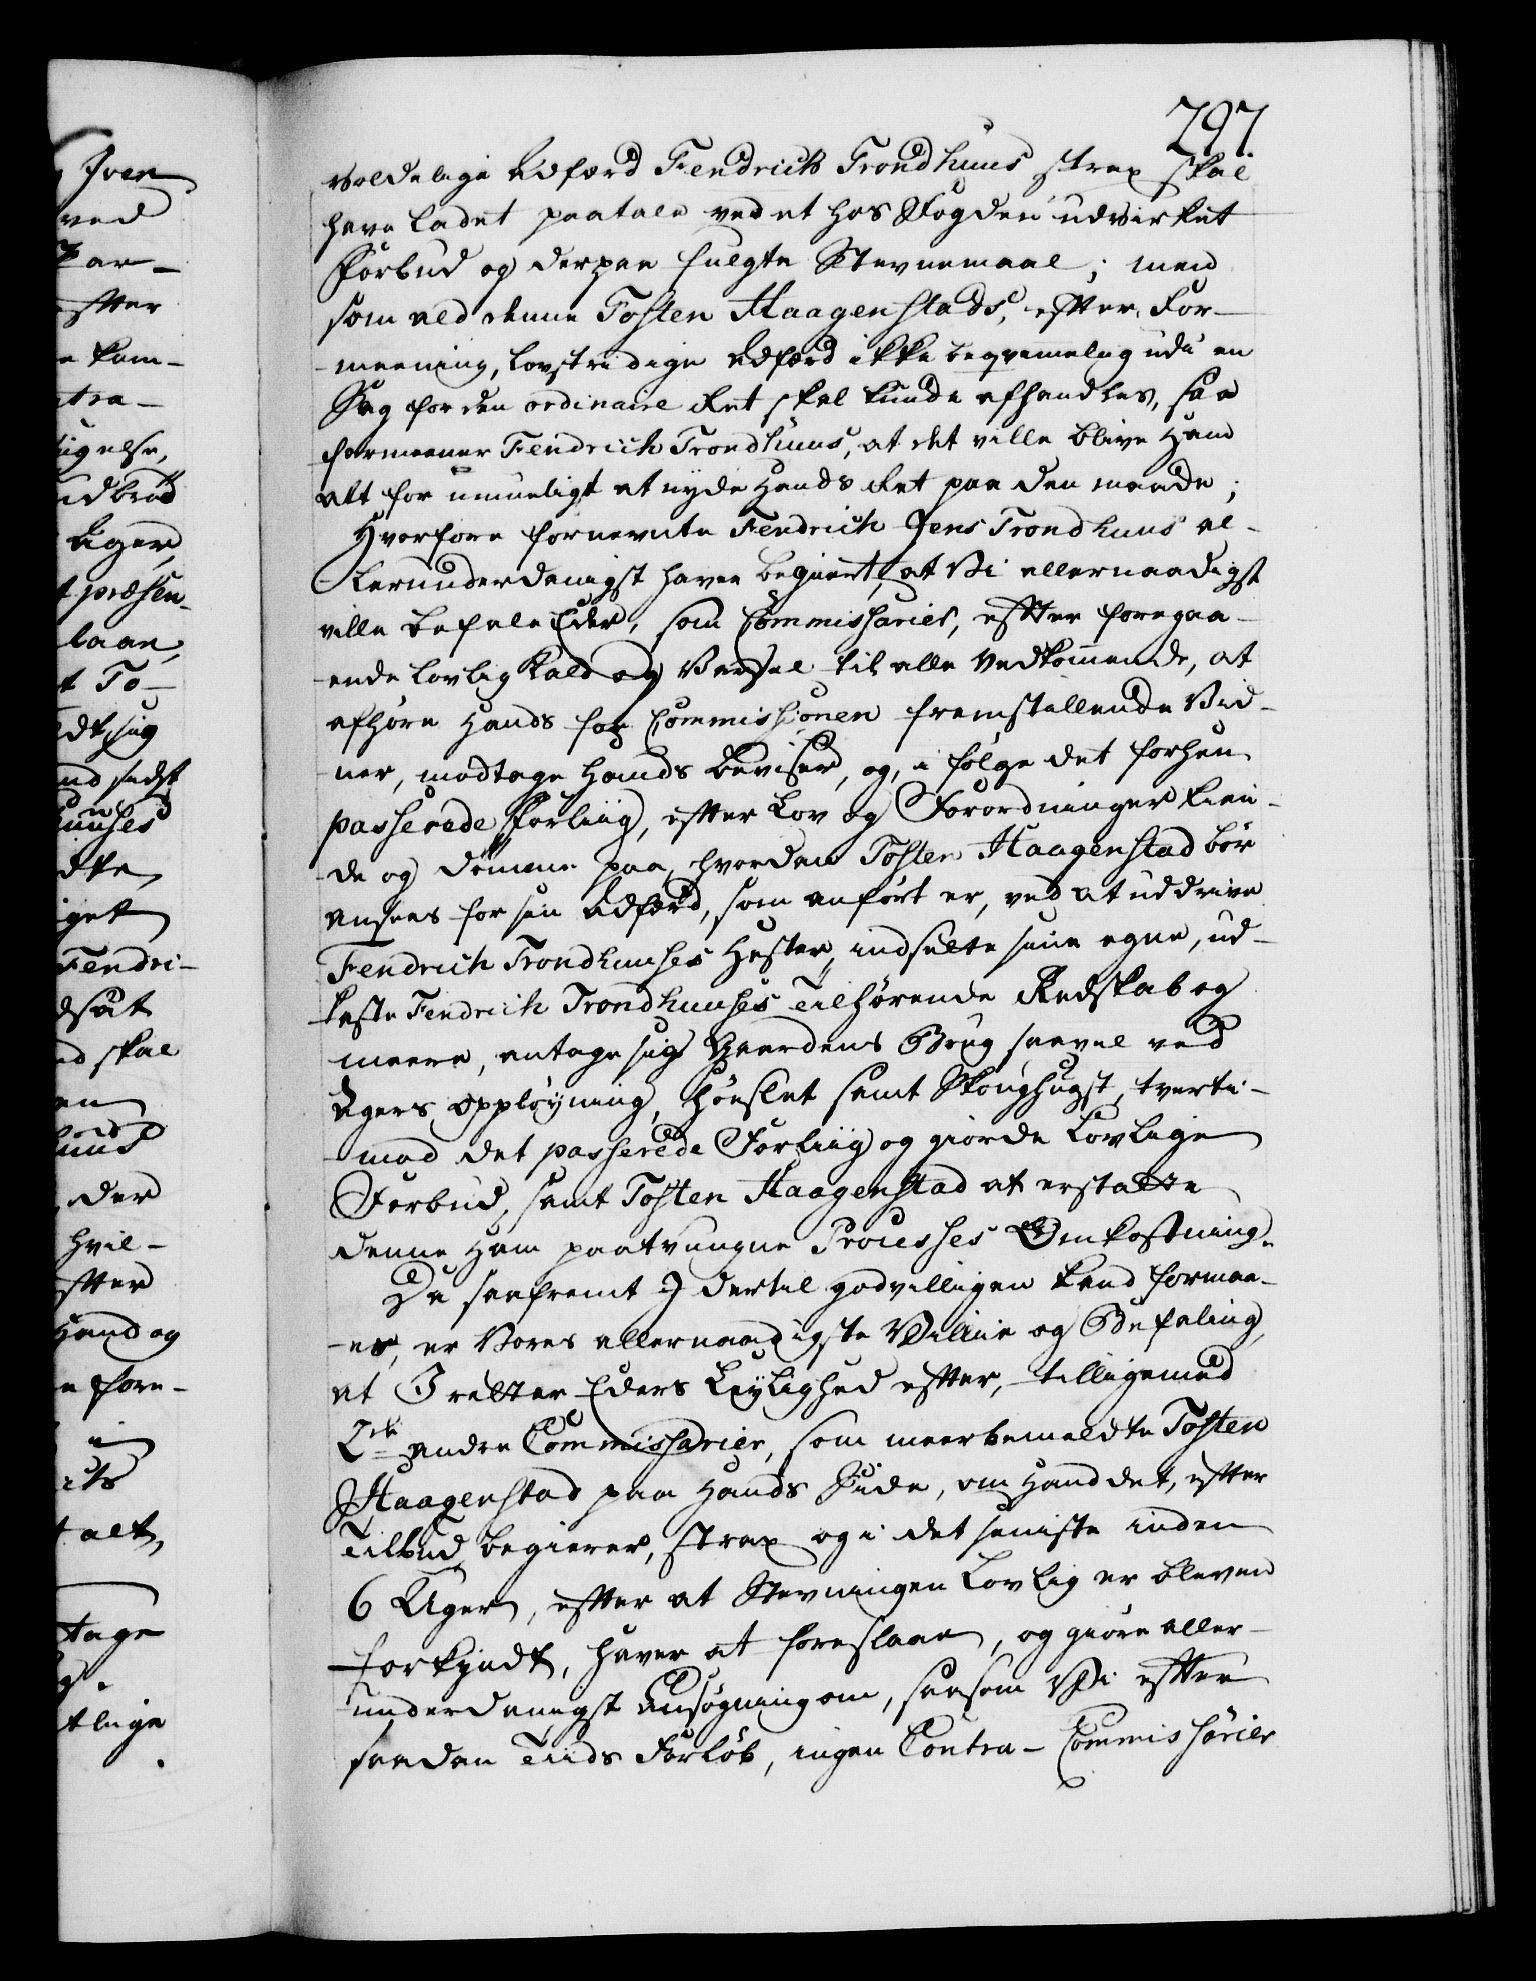 297
voldelige Adfærd Fendrich Trondhuus strax skal
have ladet paatale ved et hos Fogden udvirket
Forbud og derpaa fulgte Stevnemaal; men
som ved denne Tosten Haagenstads, efter For-
meening, lovstridige Adfærd ikke beqvemelig udi en
Sag for den ordinaire Ret skal kunde afhandles, saa
formeener Fendrich Trondhuus, at det ville blive Ham
alt for umueligt at nyde Hands Ret paa den maade;
Hvorfore fornevnte Fendrich Jens Trondhuus al-
lerunderdanigst haver begiert, at Vi allernaadigst
ville befale Eder, som Commissarier, efter foregaa-
ende lovlig Kald og Varsel til alle Vedkommende, at
afhøre Hands for Commissionen fremstillende Vid-
ner, modtage Hands Beviser, og, i følge det forhen
passerede Forliig, efter Lov og Forordninger kien-
de og dømme paa, hvordan Tosten Haagenstad bør
ansees for sin Adfærd, som anført er, ved at uddrive
Fendrich Trondhuuses Hester, indsette sine egne, ud-
kaste Fendrich Trondhuuses Tilhørende Redskab og
meere, antage sig Gaardens Brug saavel ved
Agers Oppløyning, Høeslet samt Skoughugst, tverti-
mod det passerede Forliig og giorde Lovlige
Forbud, samt Tosten Haagenstad at erstatte
denne Ham paatvungne Processes Omkostning.
Da saafremt I dertil godvilligen kand formaa-
es, er Vores allernaadigste Villie og Befaling,
at I retter Eders Leylighed efter, tilligemed
2de andre Commissarier, som meerbemeldte Tosten
Haagenstad paa Hands Side, om Hand det, efter
Tilbud begierer, strax og i det seeniste inden
6 Uger, efter at Stevningen Lovlig er bleven
forkyndt, haver at foreslaae, og giøre aller-
underdanigst Ansøgning om, saasom Vi efter
saadan Tiids Forløb, ingen Contra-Commissarier